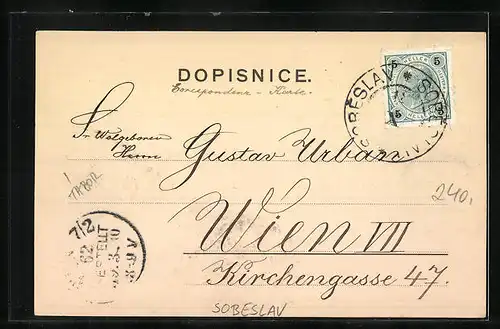 DOPISNICE.
Correspondenz-Karte.
5 5
5 5
SOBESLAV * SOBĚSLAV
Sr Wolgeboren
Herrn
Gustav Urban
! TABOR
240,
Wien VII
7/2
62
BESTELLT
Kirchengasse 47.
SOBESLAV